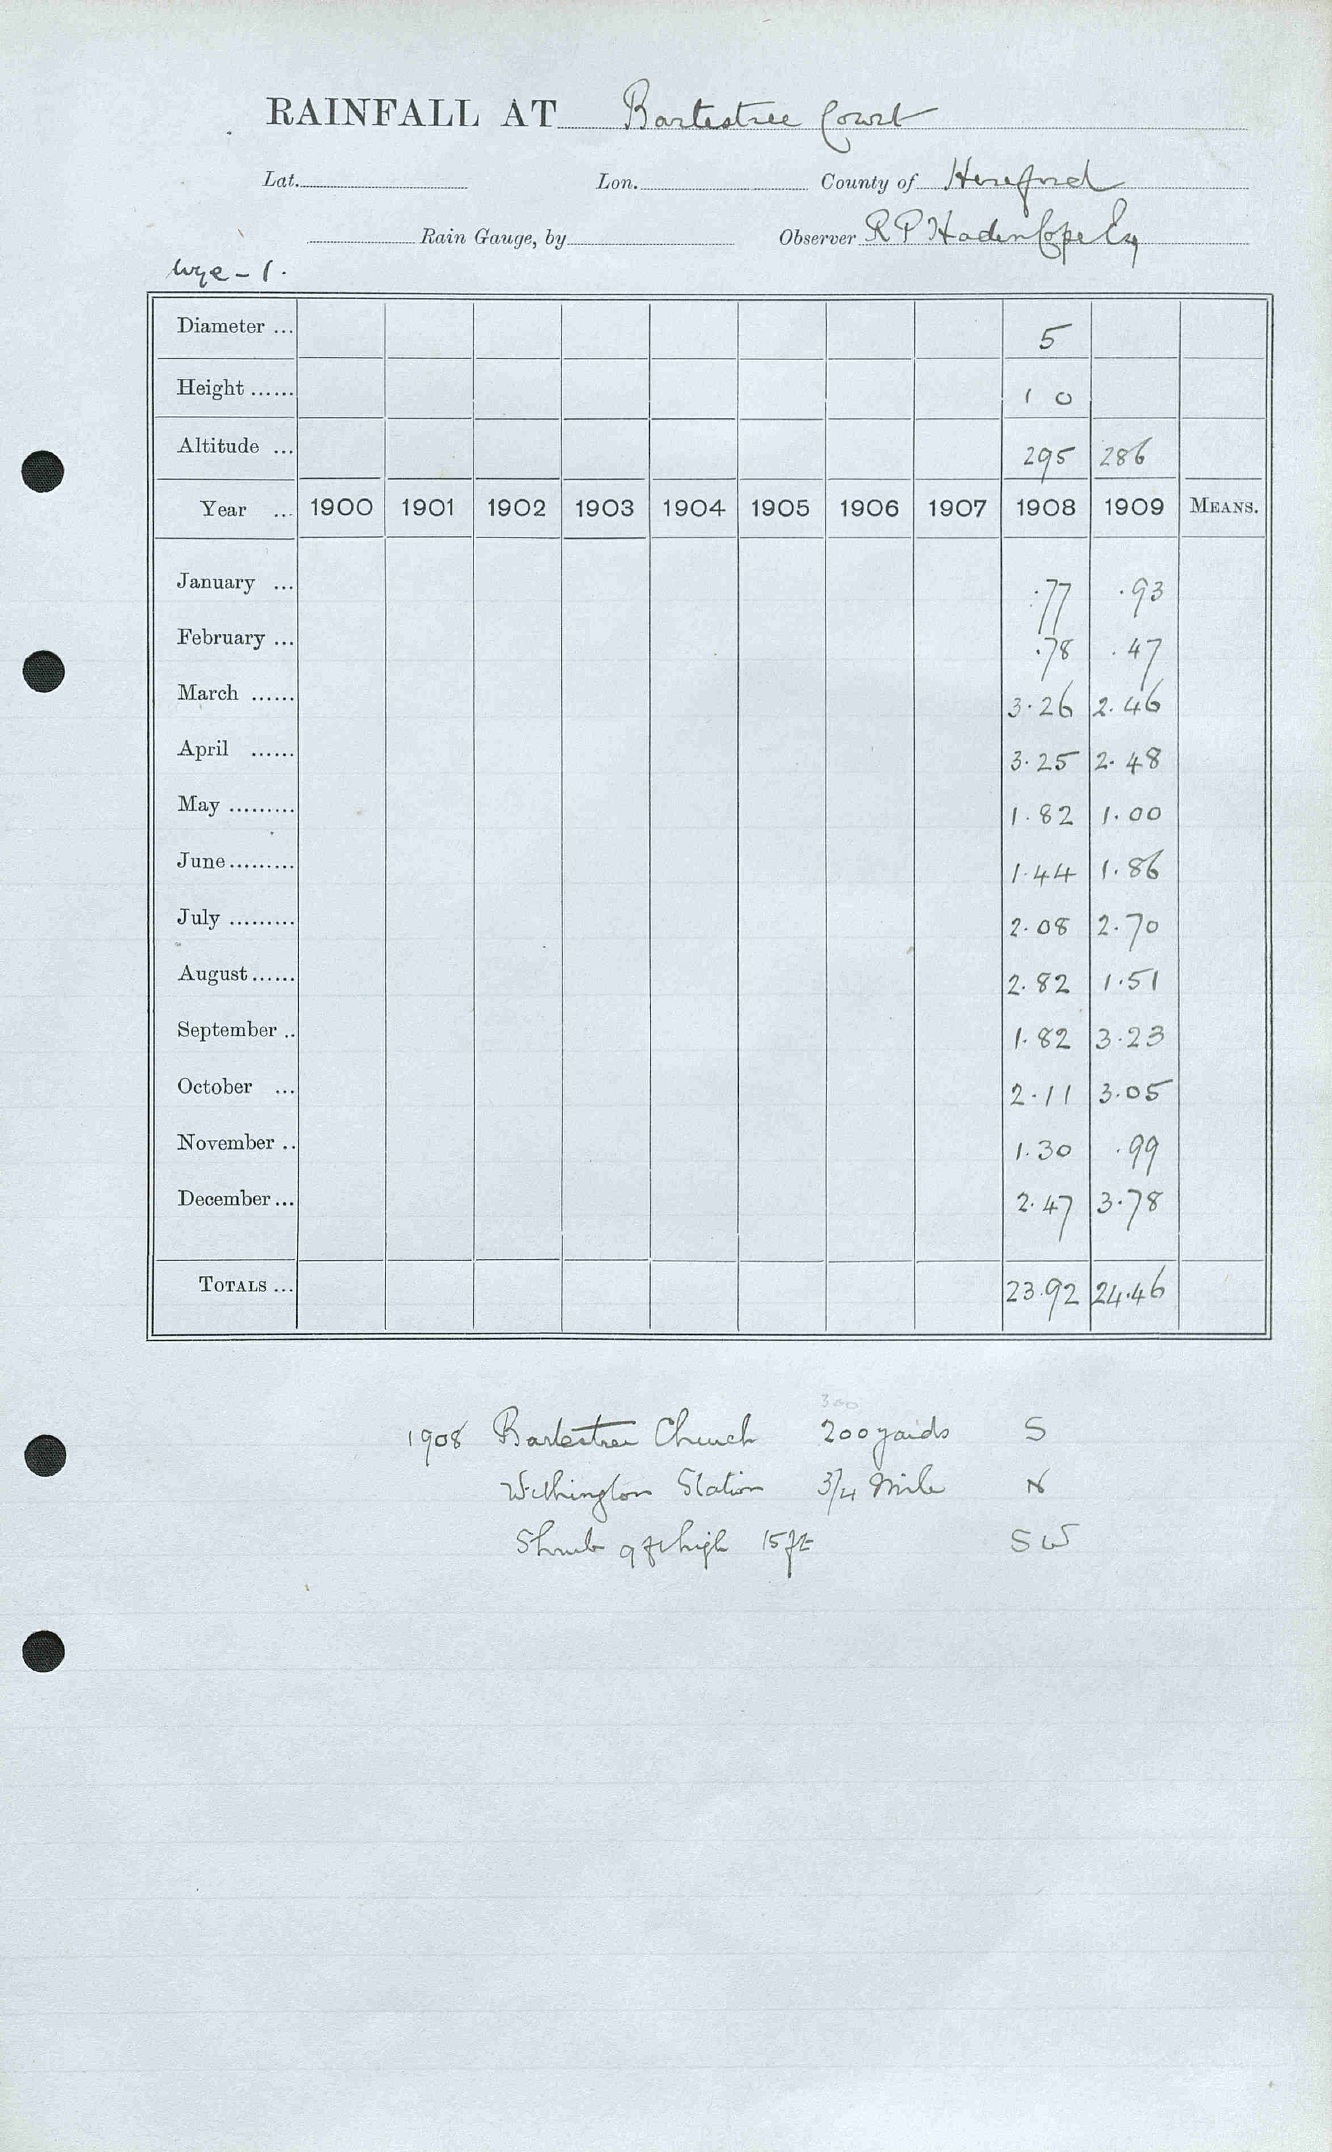 RAINFALL AT Bartestree Court
Lat. Lon. County of Hereford
Rain Gauge, by Observer R P Haden Cope Esq
Wye - 1.
Diameter ... 5
Height ...... 1 0
Altitude ... 295 286
Year ... 1900 1901 1902 1903 1904 1905 1906 1907 1908 1909 MEANS.
January ... .77 .93
February ... .78 .47
March ...... 3.26 2.46
April ...... 3.25 2.48
May ......... 1.82 1.00
June ......... 1.44 1.86
July ......... 2.08 2.70
August ...... 2.82 1.51
September .. 1.82 3.23
October ... 2.11 3.05
November .. 1.30 .99
December ... 2.47 3.78
TOTALS ... 23.92 24.46
300
1908 Bartestree Church 200 yards S
Withington Station 3/4 Mile N
Shrub 9 ft high 15 ft SW